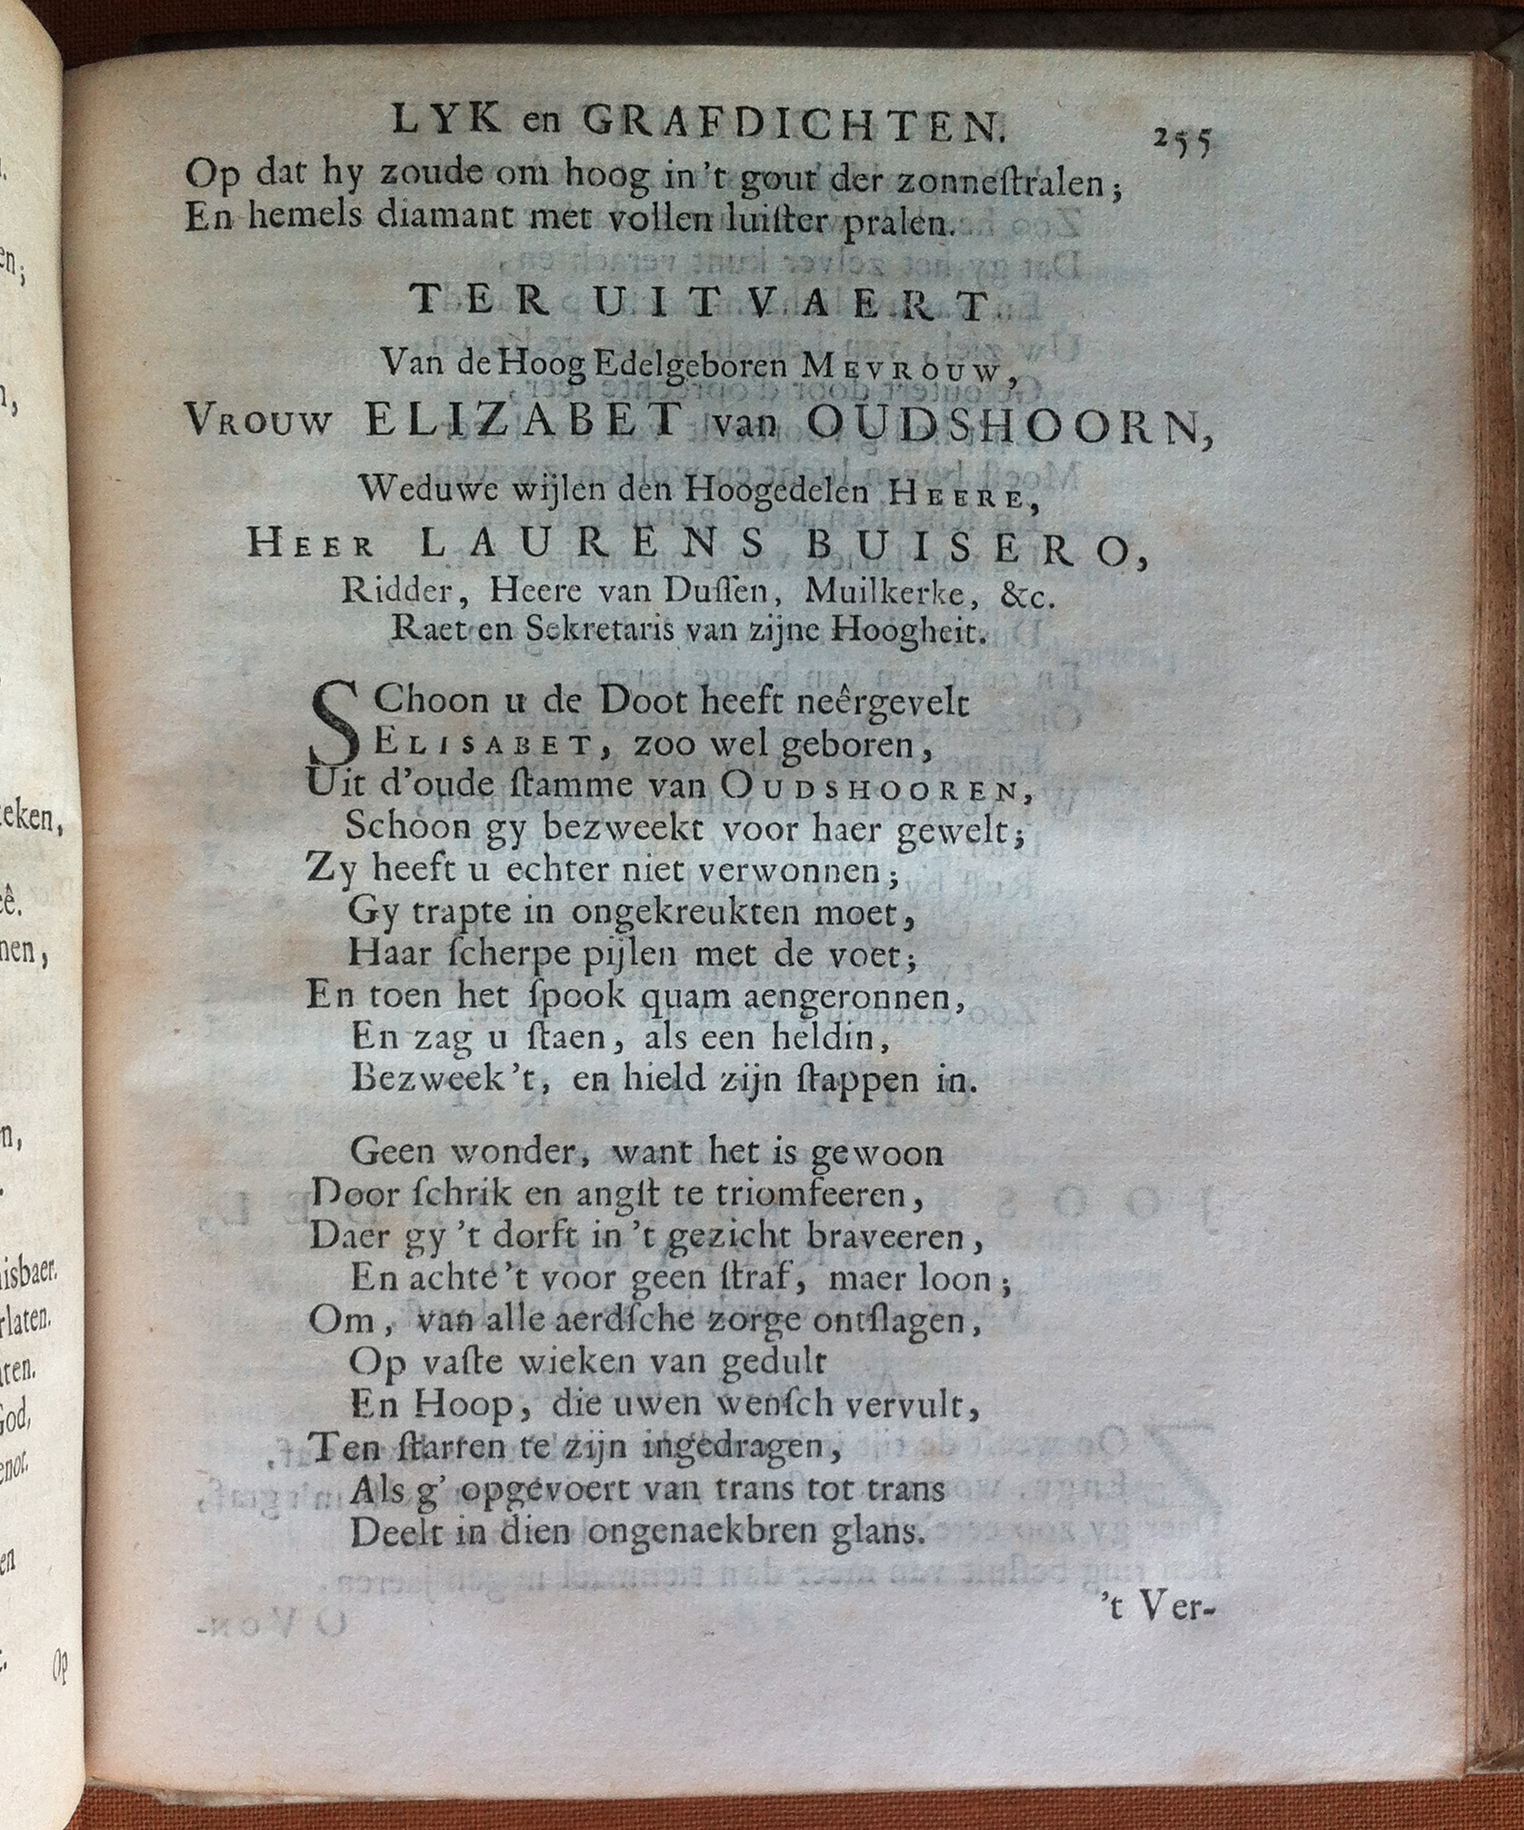 LYK en GRAFDICHTEN. 255
Op dat hy zoude om hoog in 't gout der zonneſtralen;
En hemels diamant met vollen luiſter pralen.
TER UITVAERT
Van de Hoog Edelgeboren MEVROUW,
VROUW ELIZABET van OUDSHOORN,
Weduwe wijlen den Hoogedelen HEERE,
HEER LAURENS BUISERO,
Ridder, Heere van Duſſen, Muilkerke, &c.
Raet en Sekretaris van zijne Hoogheit.
SChoon u de Doot heeft neêrgevelt
ELISABET, zoo wel geboren,
Uit d'oude ſtamme van OUDSHOOREN,
Schoon gy bezweekt voor haer gewelt;
Zy heeft u echter niet verwonnen;
Gy trapte in ongekreukten moet,
Haar ſcherpe pijlen met de voet;
En toen het ſpook quam aengeronnen,
En zag u ſtaen, als een heldin,
Bezweek 't, en hield zijn ſtappen in.
Geen wonder, want het is gewoon
Door ſchrik en angſt te triomfeeren,
Daer gy 't dorft in 't gezicht braveeren,
En achte 't voor geen ſtraf, maer loon;
Om, van alle aerdſche zorge ontſlagen,
Op vaſte wieken van gedult
En Hoop, die uwen wenſch vervult,
Ten ſtarren te zijn ingedragen,
Als g' opgevoert van trans tot trans
Deelt in dien ongenaekbren glans.
't Ver-